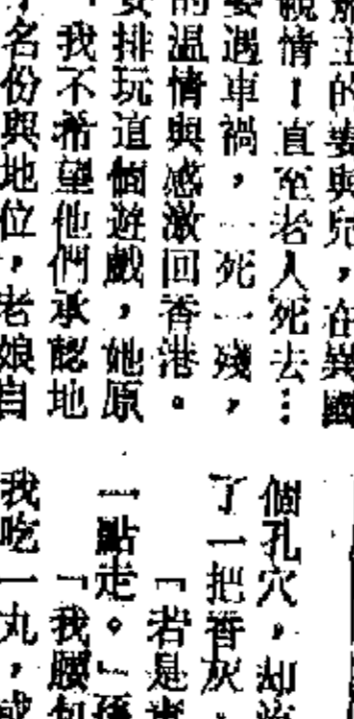 施主的妻與兒，在異國
親情！直至老人死去…
妻遇車禍，一死一殘，
的溫情與感激回香港。
安排玩這個遊戲，她原
「我不希望他們承認地
了名份與地位，老娘自
個孔穴，却
了一把香灰，
「若是
一點走。」孫
「我腰包
我吃一丸，或